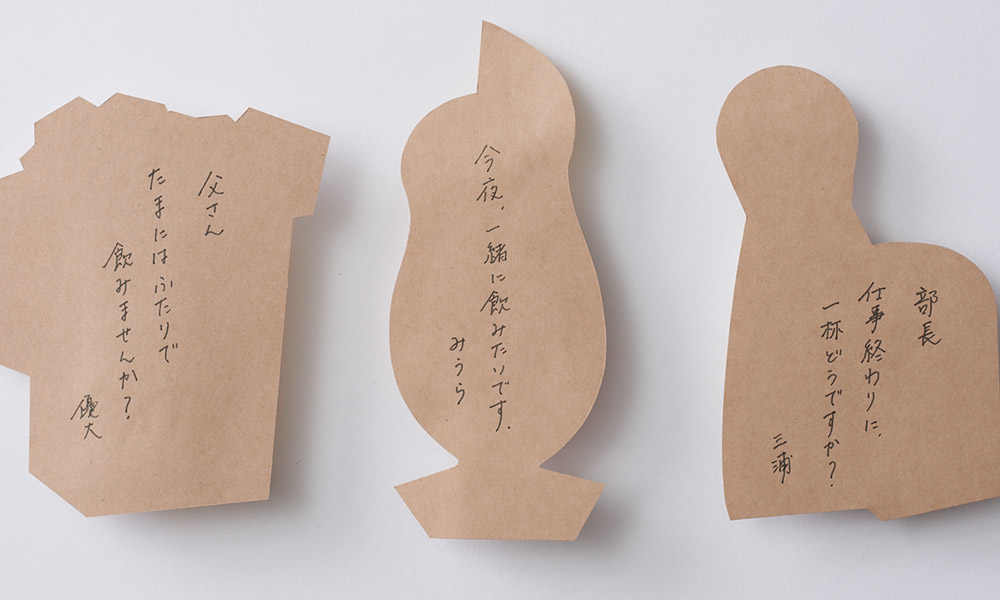 父さん
たまにはふたりで
飲みませんか?
優大
今夜、一緒に飲みたいです.
みうら
部長
仕事終わりに、
一杯どうですか?
三浦